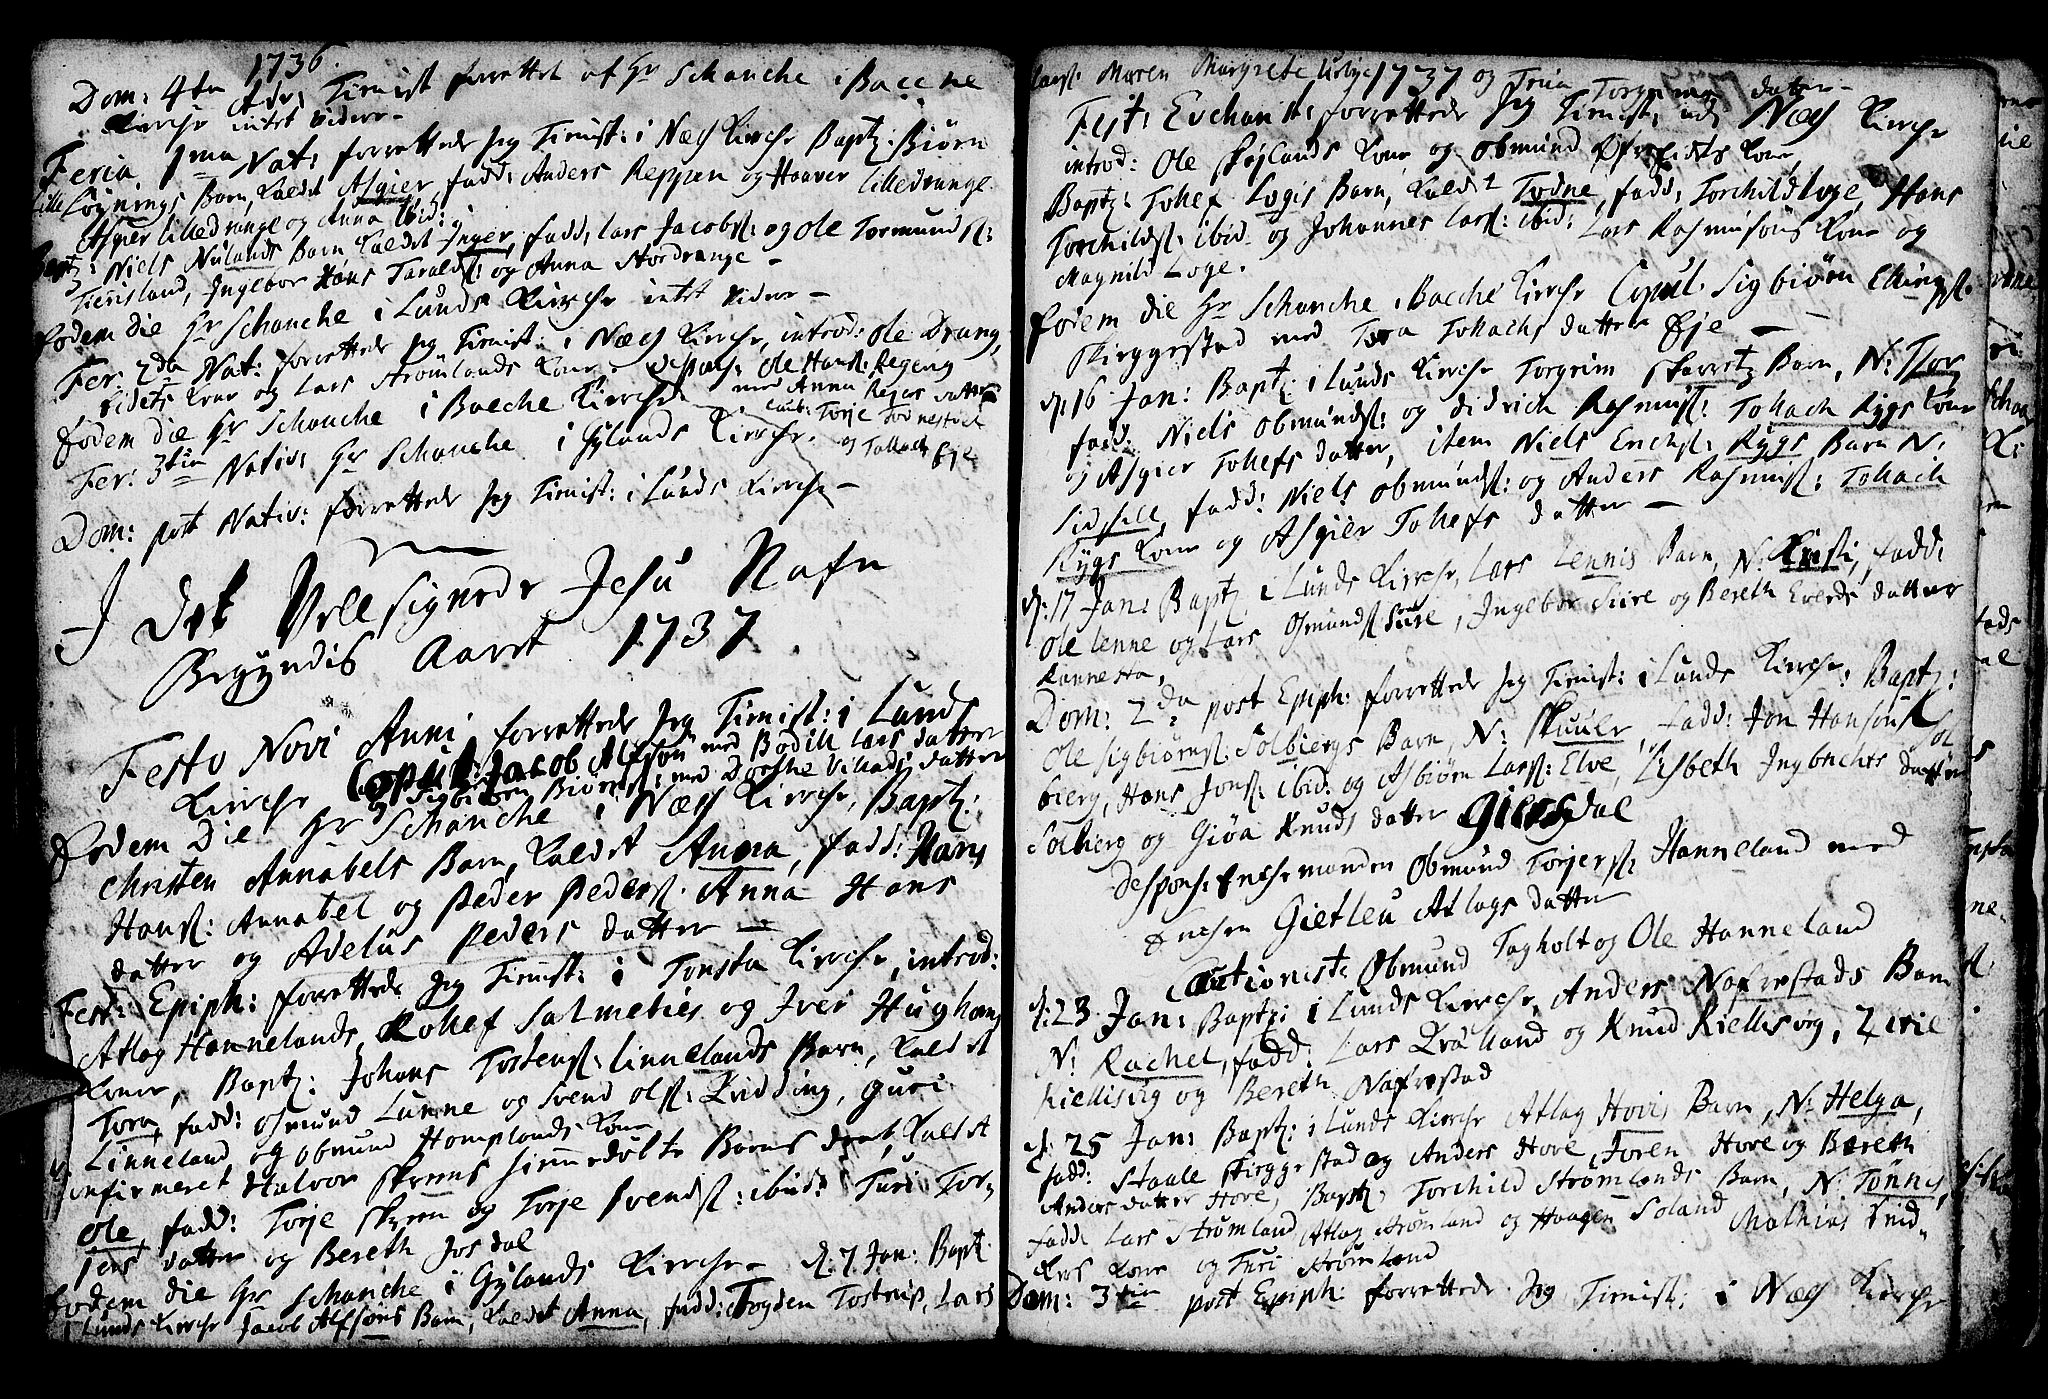 1736.
Dom: 4ta Adv: Tienist forrettet af Hr Schanche i Bacche
Kirche intet videre
Feria 1ma Nat: forrettede Jeg Tienist: i Næs Kirche Bapt: Biørn
Løynings Barn, Kaldet Asgier, fadd: Anders Reppen og Haaver Lilledrange
Asgier Lilledrange og Anna ibid:
Bapt: Niels Nulands Barn Kaldet Inger, fadd: Lars Jacobs: og Ole Tormunds:
Tienisland, Ingebor Hans Taralds: og Anna Stordrange
Eodem die Hr Schanche i Lunds Kirche intet videre
Fer: 2da Nat: forrettede Jeg Tienist: i Næs Kirche, introd: Ole Drang
eidets Kone og Lars Strømlands Kone despons: Ole Hans: Regeng
Eodem die Hr Schanche i Bacche Kirche med Anna datter
caut: Torje
Fer: 3tia Nativ: Hr Schanche i Gylands Kirche og Tollach Eje
Dom: post Nativ: forrettede Jeg Tienist: i Lunds Kirche
I Det Velsignede Jesu Nafn
Begyndis Aaret 1737.
Festo Novi Anni forrettede Jeg Tienist: i Lunds
Kirche Copul: Jacob Alfsøn med Bodill Lars datter
og Sigbiørn Biørns: med Dorthe Villads datter
Eodem Die Hr Schanche i Næs Kirche, Bapt:
Christen Annabels Barn, Kaldet Anna, fadd: Hans
Hans: Annabel og Peder Peders: Anna Hans
datter og Adelus Peders datter
Fest: Epiph: forrettede Jeg Tienist: i Tonsta Kirche, introd:
Atlag Hannelands, Rolief Salmelies og Iver Hughoms
Koner, Bapt: Johans Tostens: Linnelands Barn, Kaldet
Tora, fadd: Osmund Lunne og Svend Ols: Qvidding, Guri
Linneland og Obmund Homplands Kone
Confirmeret Halvor Skreens hiemedøbte Barns daab, Kaldet
Ole, fadd: Torje Skreen og Torje Svends: ibid: Turi Tor
jers datter og Bereth Josdal
Eodem die Hr Schanche i Gylands Kirche d: 7 Jan: Bapt
i Lunds Kirche Jacob Alfsøns Barn, Kaldet Anna, fadd: Trogden Tostrup, Lars
Lars: Maren Margrete 1737 og Torgrims datter
Fest: Evchar: forrettede Jeg Tienist: udi Næs Kirche
introd: Ole Skøjlands Kone og Obmund Kone
Bapt: Tolief Logis Barn, Kaldet Todne, fadd: Torchild Loge, Hans
Torchilds: ibid og Johannes Lars: ibid: Lars Rasmusøns Kone og
Magnild Loge.
Eodem die Hr Schanche i Bacche Kirche Copul. Sigbiørn Ellings:
Skieggestad med Tora Tollachs datter Eje
d: 16 Jan: Bapt: i Lunds Kirche Torgrim Barn, N: Tor
fadd: Niels Obmunds: og Didrich Rasmus: Tollach Rygs Kone
og Asgier Toliefs datter, item Niels Erichs: Rygs Barn N:
Sidsell, fadd: Niels Obmunds: og Anders Rasmus: Tollach
Rygs Kone og Asgier Toliefs datter
d: 17 Jan: Bapt i Lunds Kirche, Lars Lennis Barn, N: Kirsti, fadd:
Ole Lenne og Lars Osmunds: Sure, Ingebor Siire og Bereth datter
Kannesta,
Dom: 2da post Epiph: forrettede Jeg Tienist: i Lunds Kirche: Bapt:
Ole Sigbiørns: Solbiergs Barn, N: Skuule, fadd: Jon Hansøn Sol
bierg, Hans Jons: ibid: og Asbiørn Lars: Elve, Lisbeth Ingbrichts datter
Solbierg og Giøa Knuds datter Giersdal
Despons: Enchemanden Obmund Torjers: Hanneland med
Enchen Gietleu Atlags datter
Cautionist: Obmund Tagholt og Ole Hanneland
d: 23 Jan: Bapt: i Lunds Kirche, Anders Nafrestads Barn
N: Rachel, fadd: Lars og Knud Kiellisvig, Zecil
Kiellisvig og Bereth Nafrestad
d: 25 Jan: Bapt: i Lunds Kirche Atlag Hovis Barn, N: Helga,
fadd: Staale Skieggestad og Anders Hove, Joren Hove og Bereth
Anders datter Hove, Bapt: Torchild Strømlands Barn, N: Tønnes,
fadd: Lars Strømland, Atlag Strømland og Haagen Soland Mathias
Kone og Turi Strømland
Dom: 3tia post Epiph: forrettede Jeg Tienist: i Næs Kirche